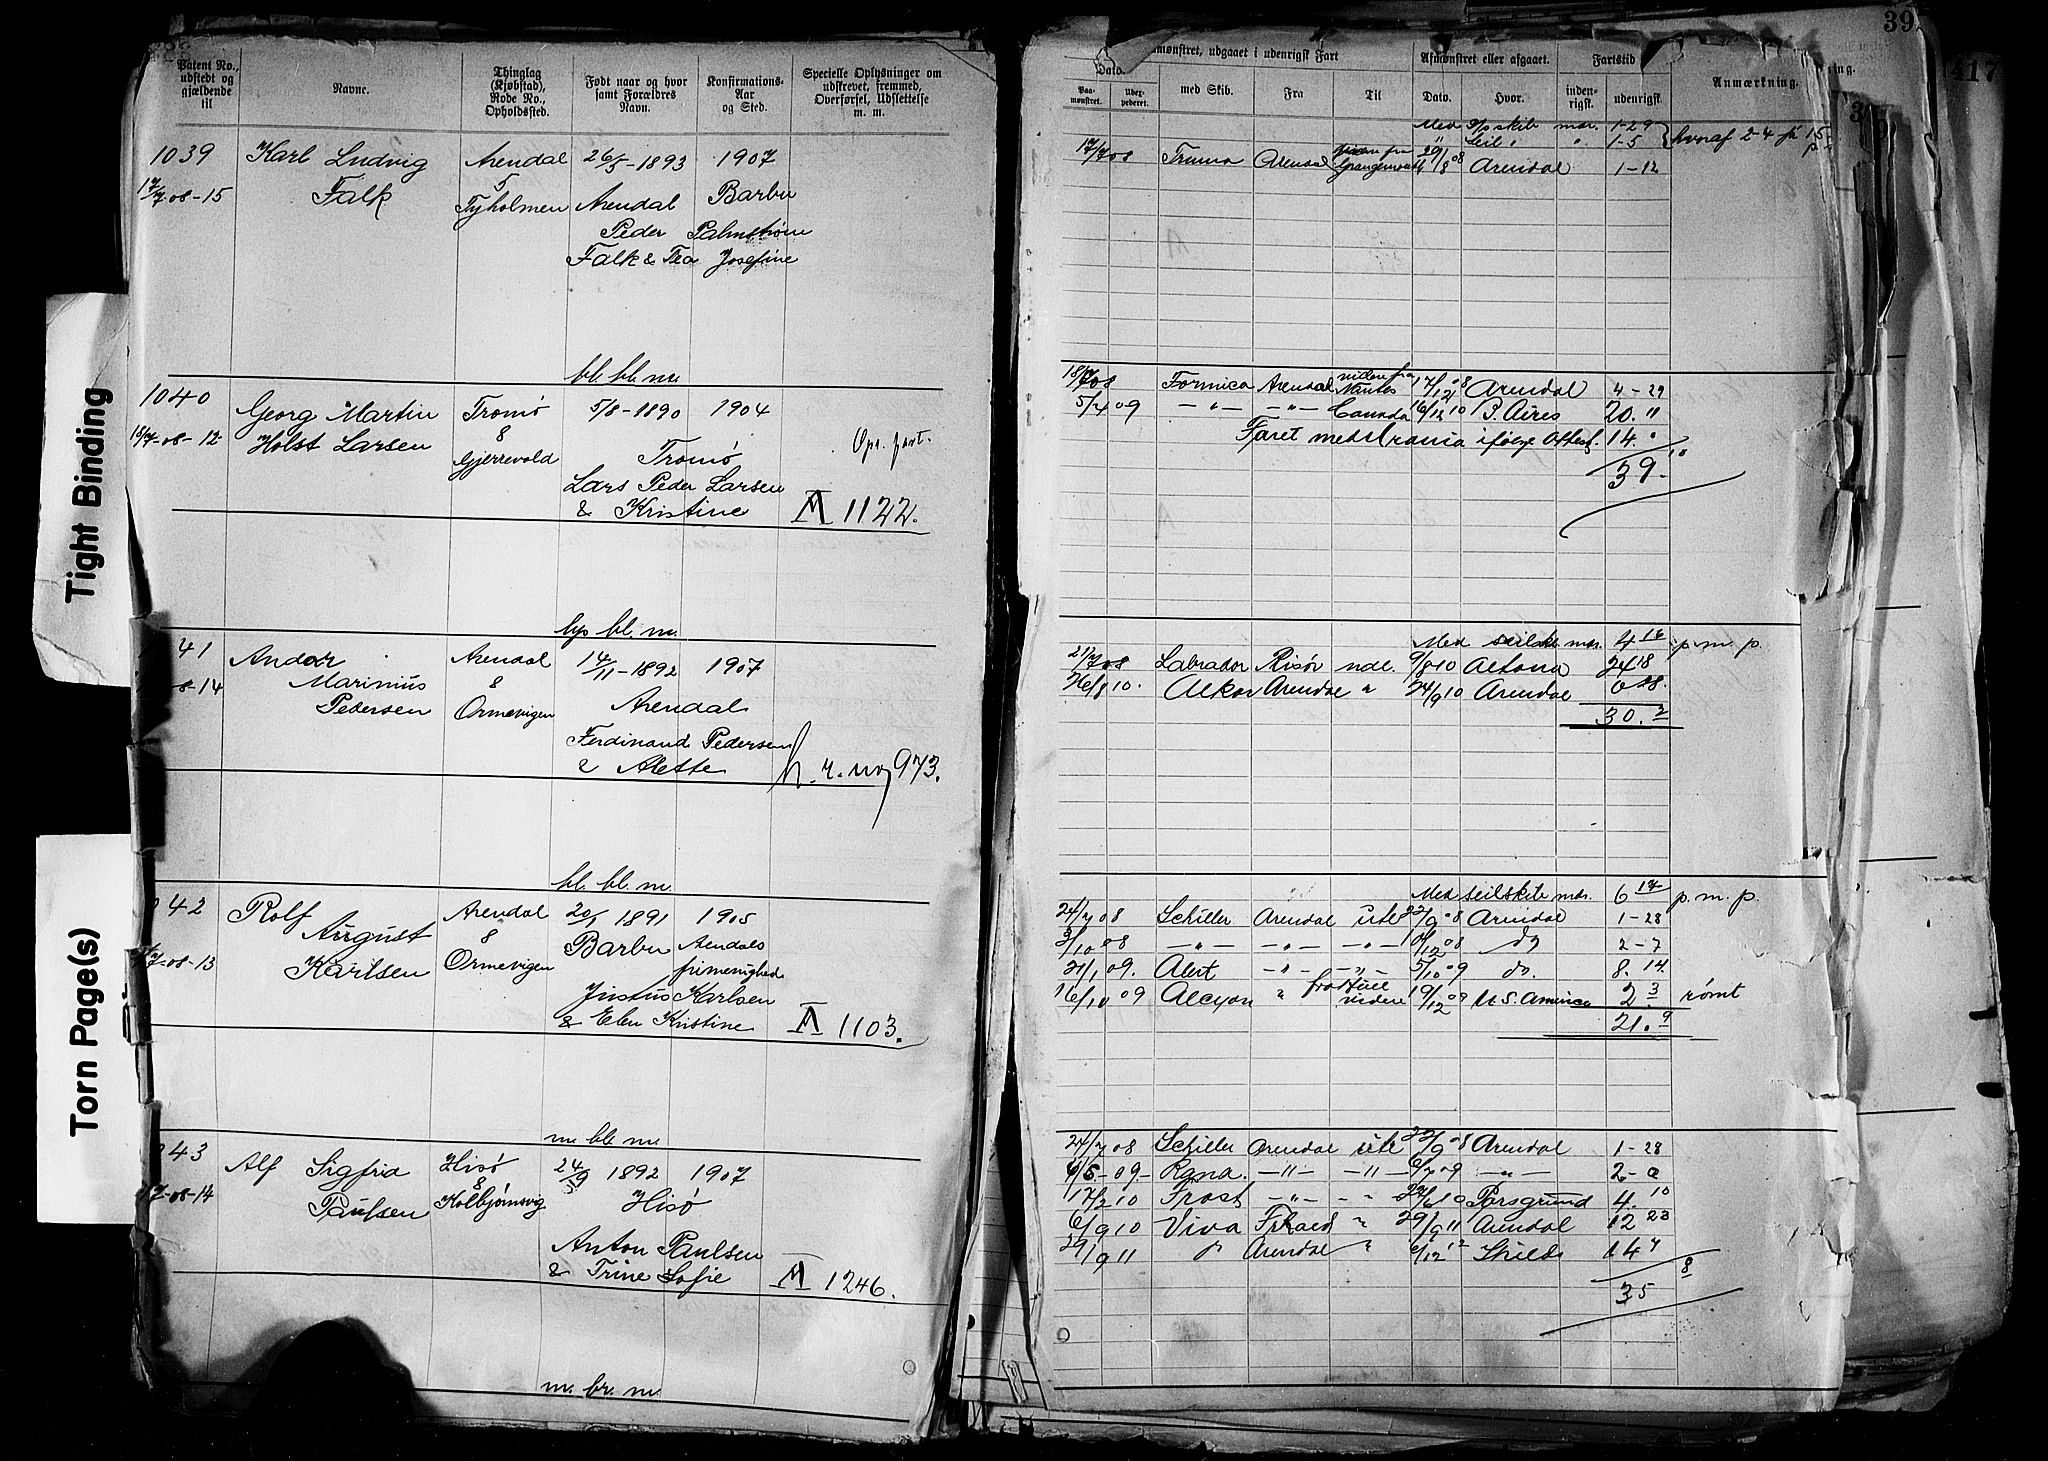 Tight Binding
Torn Page(s)
Patent No., udstedt og gjældende til
Navne.
Thinglag (Kjøbstad), Rode No., Opholdssted.
Født naar og hvor samt Forældres Navn.
Konfirmations-Aar og Sted.
Specielle Oplysninger om udskrevet, fremmed, Overførsel, Udslettelse m. m.
1039 Karl Ludvig Arendal 26/5-1893 1907
17/7-08-15 Falk 5 Tyholmen Arendal Barbu
Peder Palmstrøm
Falk & Tea Josefine
bl. bl. m.
1040 Georg Martin Tromø 5/8-1890 1904
18/7-08-12 Holst Larsen 8 Gjerrevold Tromø
Lars Peder Larsen
& Kristine A 1122.
bl. m.
41 Andor Arendal 14/11-1892 1907
8-14 Marinius 8
Pedersen Ormevigen Arendal
Ferdinand Pedersen
& Alette 973.
bl. bl. m.
42 Rolf Arendal 1891 1905
August 8 Barbu Arendals
7-08-13 Karlsen Ormevigen frimenighed
Justus Karlsen
& Elen Kristine A 1103.
m. bl. m.
43 Alf Sigfrid Hisø 24/9 1892 1907
7-08-14 Paulsen 8 Kolbjørnsvig Hisø
Anton Paulsen
& Trine Sofie A 1246.
m. br. m.
39
417
mønstret, udgaaet i udenrigsk Fart
Afmønstret eller afgaaet.
Fartstid
Anmærkning.
Dato.
Paa-mønstret.
Uder-pederet.
med Skib.
Fra
Til
Dato.
Hvor.
inden-rigsk.
udenrigsk
Med D/s skib mdr. 1-29
Seil " " 1-5 hvoraf 2-4
17/7 08 Truma Arendal Grangemouth Arendal 1-12
18/7 08 Formica Arendal viden fra Nantes 17/12 08 Arendal 4-29
5/4 09 -"- -"- Canada 16/12 10 B. Aires 20. 11
Faret med Urania ifølge Attest. 14.
39. 10
Med seilsk mdr. 4 16 p. m. p.
21/7 08 Labrador Risør udl. 9/8 10 Altona 24 18
26/8 10. Alkor Arendal " 24/9 10 Arendal 0 28.
30. 2
Med seilskib mdr. 6 17 p. m. p.
24/7 08 Schiller Arendal utl 22/9 08 Arendal 1-28
3/10 08 -"- -"- -"- 10/12 08 do 2-7
21/1 09. Alert -"- -"- 5/10 09 do. 8. 14.
16/10 09 Alcyon " videre 19/12 09 U. S. America 2. 3 rømt
21. 9
24/7 08 Schiller Arendal utl 22/9 08 Arendal 1-28
6/5-09- Rana. -"- -"- 6/7 09 -"- 2-0
17/2 10 Frost -"- " 27/6 10 Porsgrund 4. 10
6/9 10 Viva " 29/9 11 Arendal 12 23
29/9 11 " Arendal " 6/12 12 Shields 14 7
35 8